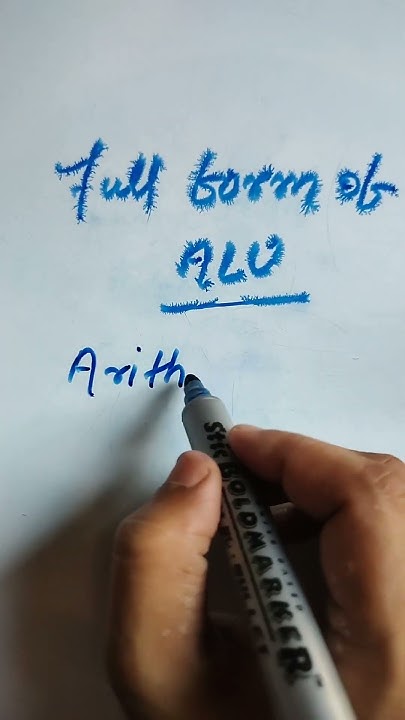 Full form of
ALU
Arith
Stic BOLDMARKER